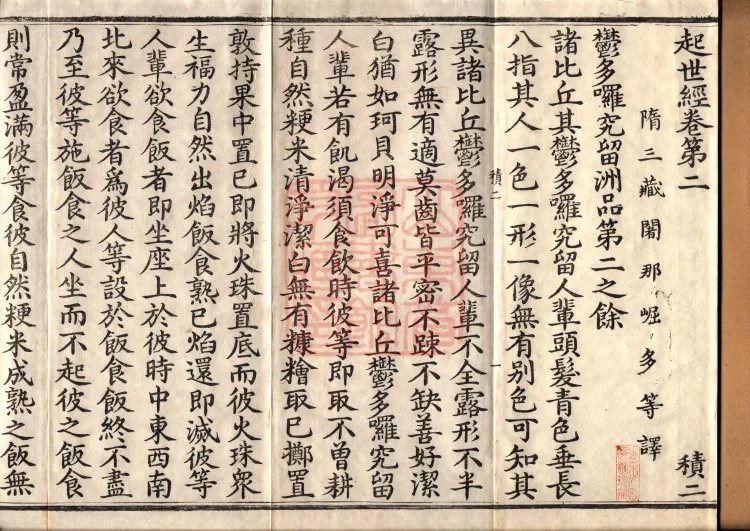 起世經卷第二 積二
隋三藏闍那崛多等譯
鬱多囉究留洲品第二之餘
諸比丘其鬱多囉究留人輩頭髮青色垂長
八指其人一色一形一像無有別色可知其
積二 一
異諸比丘鬱多囉究留人輩不全露形不半
露形無有適莫齒皆平密不踈不缺善好潔
白猶如珂貝明淨可喜諸比丘鬱多囉究留
人輩若有飢渴須食飲時彼等即取不曾耕
種自然粳米清淨潔白無有糠糩取已擲置
敦持果中置已即將火珠置底而彼火珠衆
生福力自然出焰飯食熟已焰還即滅彼等
人輩欲食飯者即坐座上於彼時中東西南
北來欲食者爲彼人等設於飯食飯終不盡
乃至彼等施飯食之人坐而不起彼之飯食
則常盈滿彼等食彼自然粳米成熟之飯無